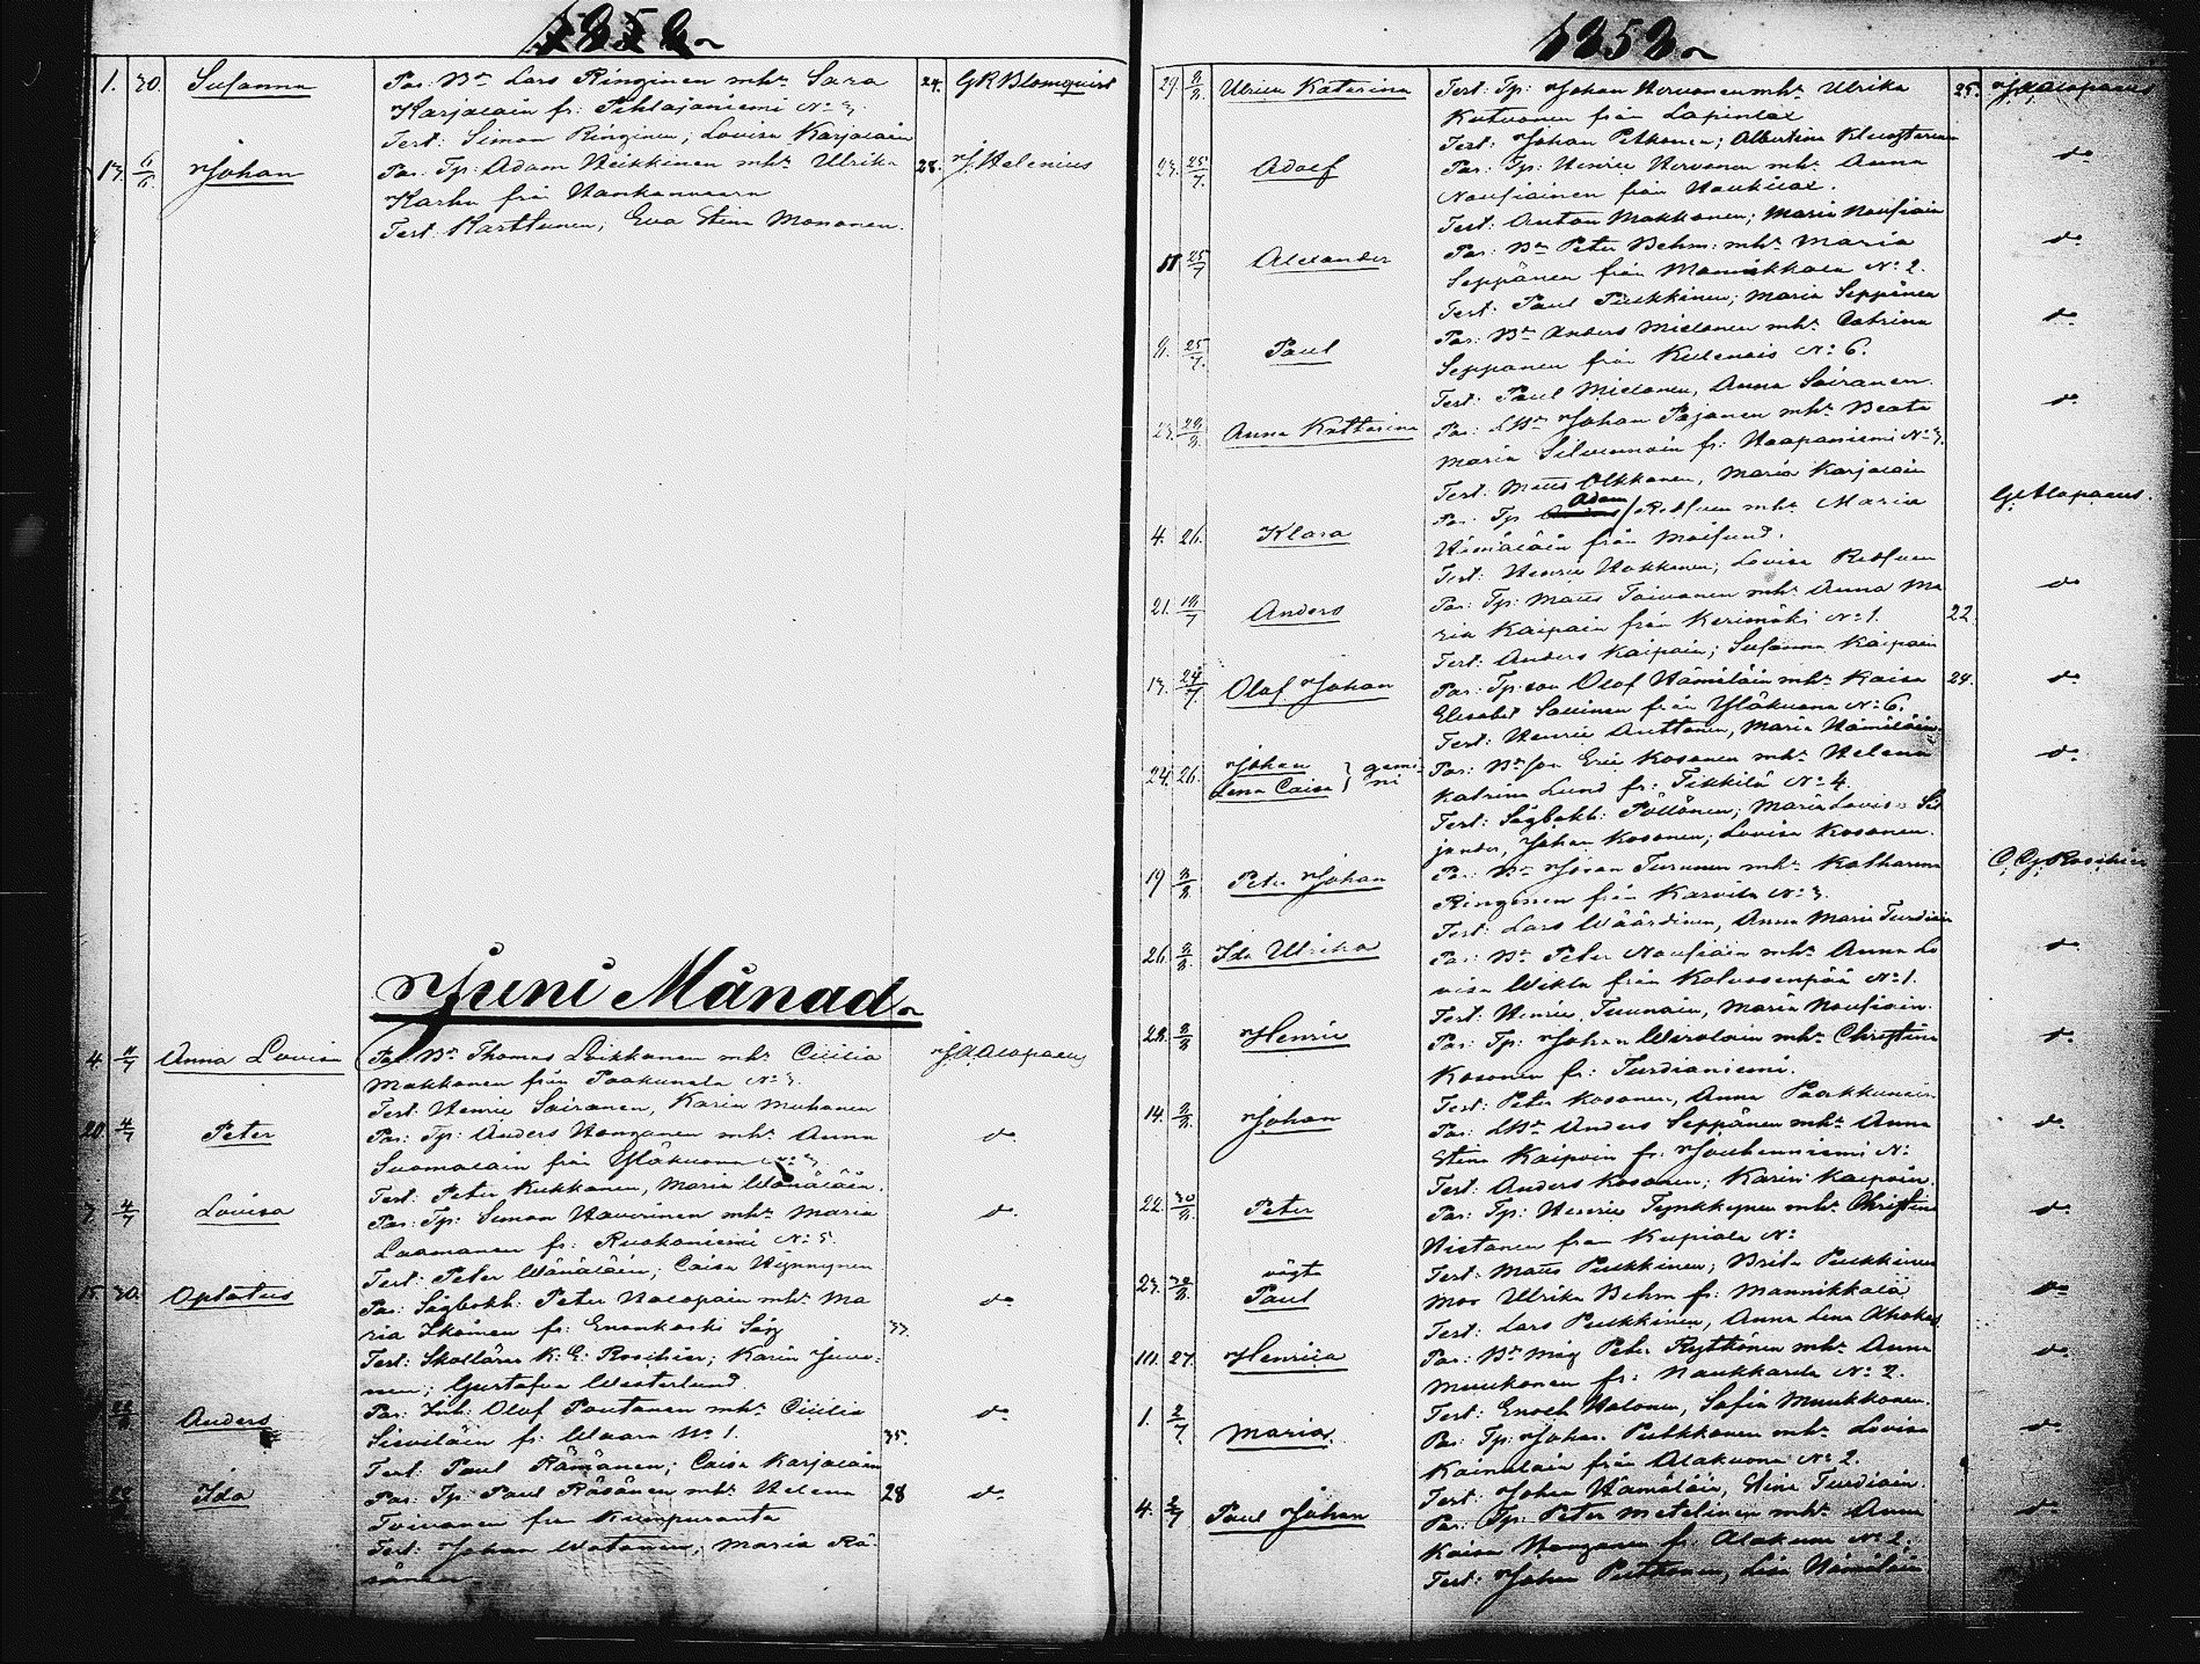 1858
1. 30. Susanna Par: Bn Lars Ringinen mhr Sara 24. GR Blomquist
Karjalain fr: Pihlajaniemi No 3.
Test: Simon Ringinen; Lovisa Karjalain
13. 6/6. Johan Par: Tp: Adam Heikkinen mhr Ulrika 28. J. Helenius
Karhu från Haukanvaara
Test: Karttunen; Eva Stina Mononen.
Juni Månad
4. 4/7 Anna Lovisa Par: Bn Thomas Loikkanen mhr Cicilia J. H. Alopaeus
Makkonen från Paakunala No 3.
Test: Henric Sairanen, Karin Muhonen
20. 4/7 Peter Par: Tp: Anders Hongonen mhr Anna do
Suomalain från Yläkuona No 3.
Test: Peter Kukkonen, Maria Wänäläin.
7. 4/7 Lovisa Par: Tp: Simon Haverinen mhr Maria do
Laamanen fr: Ruokoniemi No 5.
Test: Peter Wänäläin; Caisa Hynnynen
15. 30. Optatus Par: Sågbokh: Peter Halapain mhr Ma
ria Ikoinen fr: Enonkoski Såg 33. do
Test: Skollärar K: E: Roschier; Karin Juvo-
nen; Gustafva Westerlund.
Anders Par: Inh: Olof Pautanen mhr Cicilia do
Sieviläin fr: Waara No 1. 35.
Test: Paul Rämänen; Caisa Karjalain
Ida Par: Tp: Paul Räsänen mhr Helena 28 do
Toivanen från Kumpuranta
Test: Johan Watanen, Maria Rä-
sänen
1858
29. 8/8. Ulrica Katarina Test: Tp: Johan Hervonen mhr Ulrika 25. J. H. Alopaeus
Kutvonen från Lapinlax
Test: Johan Petkonen; Albertina
23. 25/7. Adolf Par: Tp: Henric Hervonen mhr Anna do
Nousiainen från Haukilax.
Test: Anton Makkonen; Maria Nousiain
11 25/7 Alexander Par: Bn Peter Behm: mhr Maria do
Seppänen från Mannikkala No 2.
Test: Paul Puikkinen; Maria Seppänen
8. 25/7. Paul Par: Bn Anders Mielonen mhr Catrina do
Seppänen från Kulennois No 6.
Test: Paul Mielonen, Anna Sairanen.
23. 28/8. Anna Katharina Par: LBn Johan Pajanen mhr Beata do
Maria Silvennoin fr: Haapaniemi No 3.
Test: Matts Olkkonen, Maria Karjalain
4. 26. Klara Par: Tp Adam Redsven mhr Maria G. Alopaeus.
Hämäläin från Moisund.
Test: Henric Hokkanen; Lovisa Redsven
21. 18/7 Anders Par: Tp: Matts Toivonen mhr Anna Ma do
ria Kaipain från Kerimäki No 1. 22
Test: Anders Kaipain; Susanna Kaipain
13. 24/7. Olof Johan Par: Tp: son Olof Hämäläin mhr Kaisa 24. do
Elisabet Sallinen från Yläkuona No 6.
Test: Henric Anttonen, Maria Hämäläin
24. 26. Johan } gemi- Par: Bn son Eric Kosonen mhr Helena do
Lena Caisa } ni Katrina Lund fr: Tikkilä No 4.
Test: Sågbokh: Pöllönen; Maria Lovisa Sil
jander, Johan Kosonen; Lovisa Kosonen.
19 8/8. Peter Johan Par: Bn Jöran Turunen mhr Katharina C. G. Roschier
Ringinen från Karvila No 3.
Test: Lars Wäärdinen, Anna Maria Turdiain
26. 8/8. Ida Ulrika Par: Bn Peter Nousiain mhr Anna Lo do
visa Wikla från Kolussenpää No 1.
Test: Henric, Tuunain, Maria Nousiain.
28. 8/8 Henric Par: Tp: Johan Wirolain mhr Christina do
Kosonen fr: Turdianiemi.
Test: Peter Kosonen, Anna Paakkunain
14. 8/8. Johan Par: LBn Anders Seppänen mhr Anna do
Stina Kaipain fr: Jouhenniemi No:
Test: Anders Kosonen; Karin Kaipain.
22. 30/8. Peter Par: Tp: Henric Tynkkynen mhr Christina do
Hietanen fran Kupiala No:
Test: Matts Puikkinen; Brita Puikkinen
23. 30/8. oägta
Paul Mor Ulrika Behm fr: Mannikkala do
Test: Lars Puikkinen, Anna Lena Ahokas
10. 27. Henrica Par: Bn måg Peter Ryttönen mhr Anna do
Muukonen fr: Naukkarila No 2.
Test: Enoch Halonen, Sofia Muukkonen.
1. 2/7. Maria. Par: Tp: Johan Puhkkonen mhr Lovisa do
Kainulain från Alakuona No 2.
Test: Johan Hämäläin, Stina Turdiain.
4. 2/7 Paul Johan Par: Tp: Peter Metelinen mhr Anna do
Kaisa Hongonen fr: Alakuona No 2.
Test: Johan Puttonen, Lisa Hämäläin